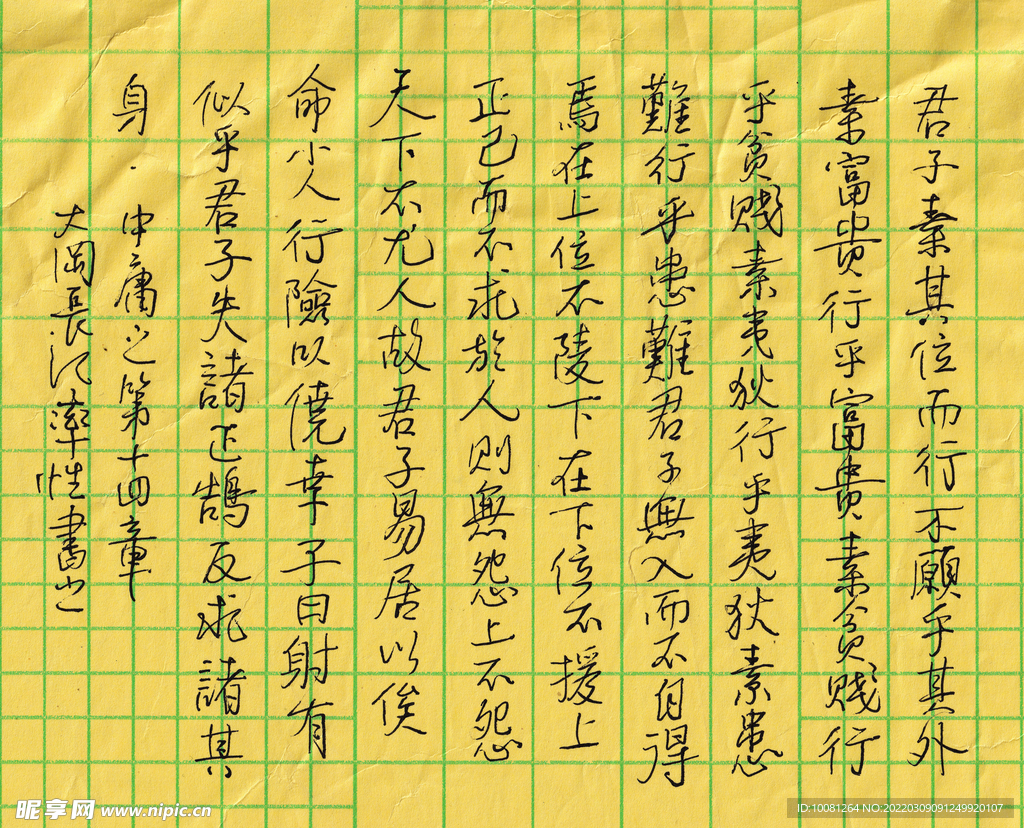 君子素其位而行不願乎其外
素富貴行乎富貴素貧賤行
乎貧賤素夷狄行乎夷狄素患
難行乎患難君子無入而不自得
焉在上位不陵下在下位不援上
正己而不求於人則無怨上不怨
天下不尤人故君子易居以俟
命小人行險以僥幸子曰射有
似乎君子失諸正鵠反求諸其
身. 中庸之第十四章
大岡長江率性書之
昵享网 www.nipic.cn
ID:10081264 NO:20220309091249920107